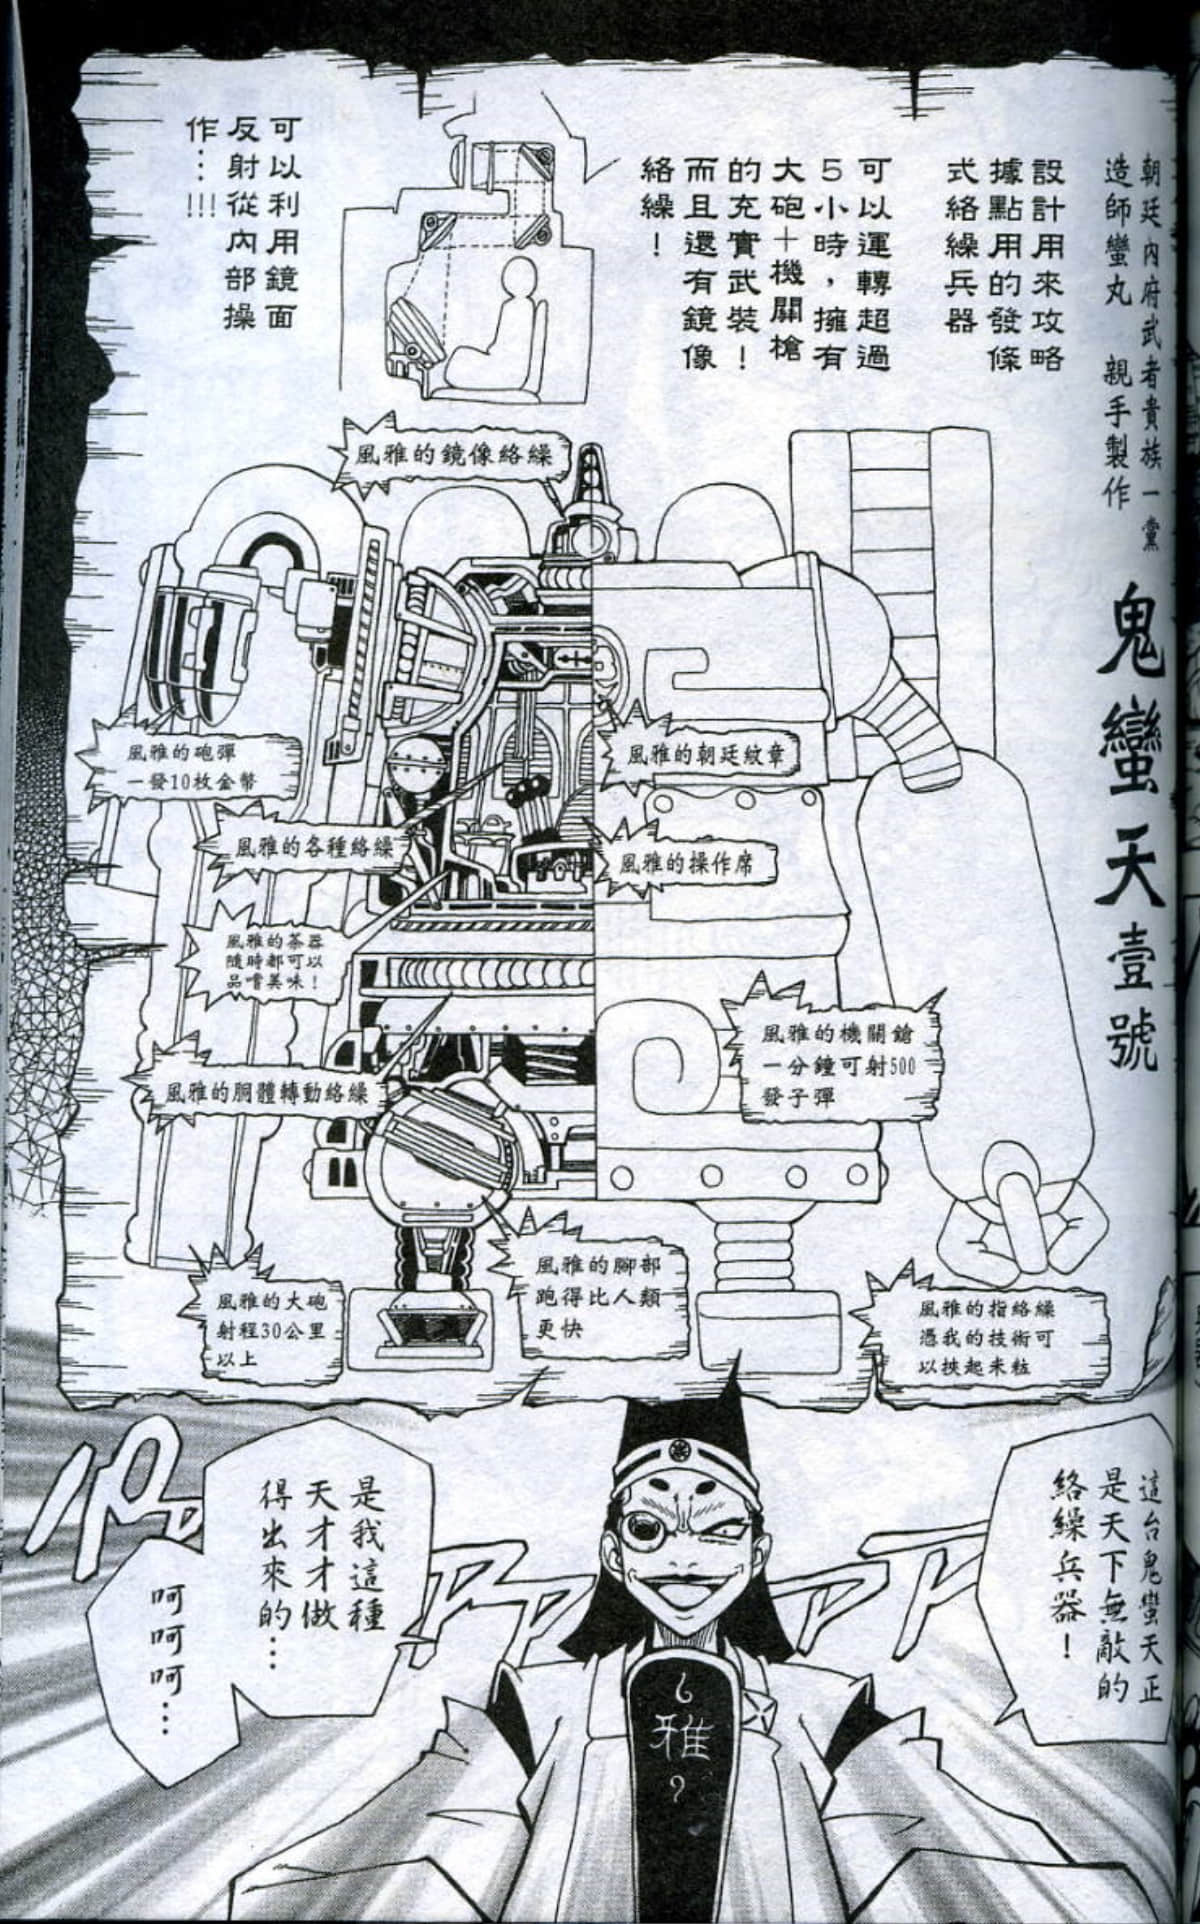 朝廷內府武者貴族一黨
造師蠻丸 親手製作
鬼蠻天壹號
設計用來攻略
據點用的發條
式絡繰兵器
可以運轉超過
5小時，擁有
大砲＋機關槍
的充實武裝！
而且還有鏡像
絡繰！
可以利用鏡面
反射從內部操
作…!!!
風雅的鏡像絡繰
風雅的朝廷紋章
風雅的砲彈
一發10枚金幣
風雅的各種絡繰
風雅的操作席
風雅的茶器
隨時都可以
品嚐美味！
風雅的機關鎗
一分鐘可射500
發子彈
風雅的胴體轉動絡繰
風雅的腳部
跑得比人類
更快
風雅的大砲
射程30公里
以上
風雅的指絡繰
憑我的技術可
以挾起米粒
這台鬼蠻天正
是天下無敵的
絡繰兵器！
是我這種
天才才做
得出來的…
呵呵呵…
雅